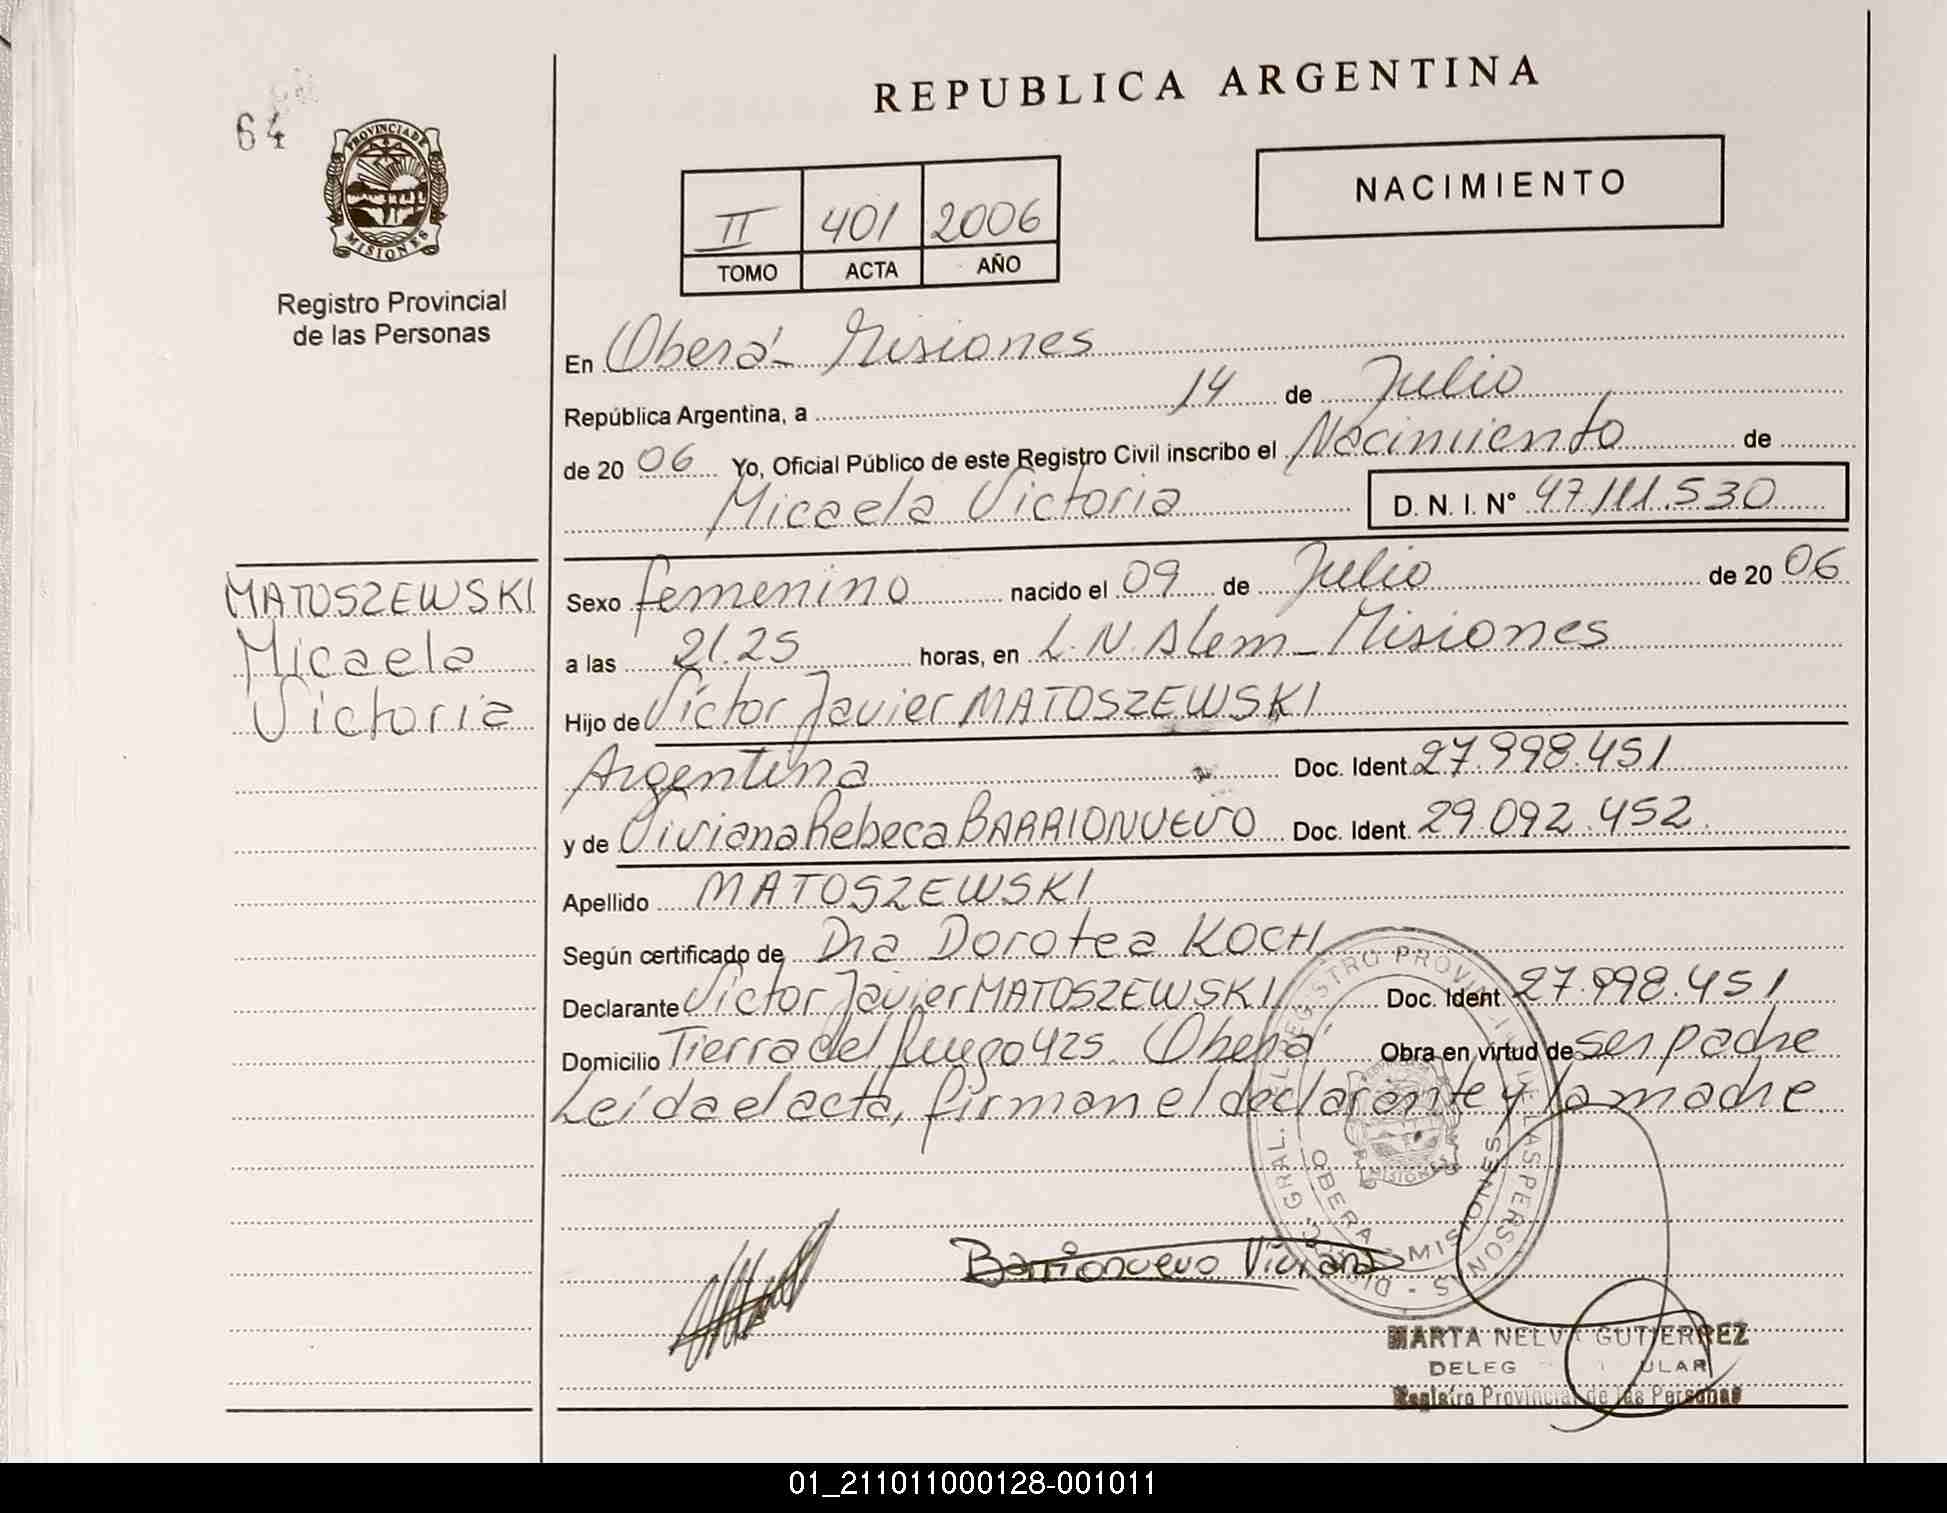 64
PROVINCIA DE
MISIONES
Registro Provincial
de las Personas
REPUBLICA ARGENTINA
NACIMIENTO
II 401 2006
TOMO ACTA AÑO
En Oberá - Misiones
República Argentina, a 14 de Julio
de 20 06 Yo, Oficial Público de este Registro Civil inscribo el Nacimiento de
Micaela Victoria D. N. I. N° 47.111.530
MATOSZEWSKI
Micaela
Victoria
Sexo femenino nacido el 09 de Julio de 20 06
a las 21.25 horas, en L.N. Alem - Misiones
Hijo de Víctor Javier MATOSZEWSKI
Argentina Doc. Ident. 27.998.451
y de Viviana Rebeca BARRIONUEVO Doc. Ident. 29.092.452.
Apellido MATOSZEWSKI
Según certificado de Dra Dorotea KOCH
Declarante Víctor Javier MATOSZEWSKI Doc. Ident. 27.998.451
Domicilio Tierra del fuego 425. Oberá Obra en virtud de ser padre
Leída el acta, firman el declarante y la madre
Barrionuevo Viviana
GRAL. REGISTRO PROVINCIAL DE LAS PERSONAS
OBERA MISIONES
MISIONES
MARTA NELVA GUTIERREZ
Registro Provincial de las Personas
01_211011000128-001011